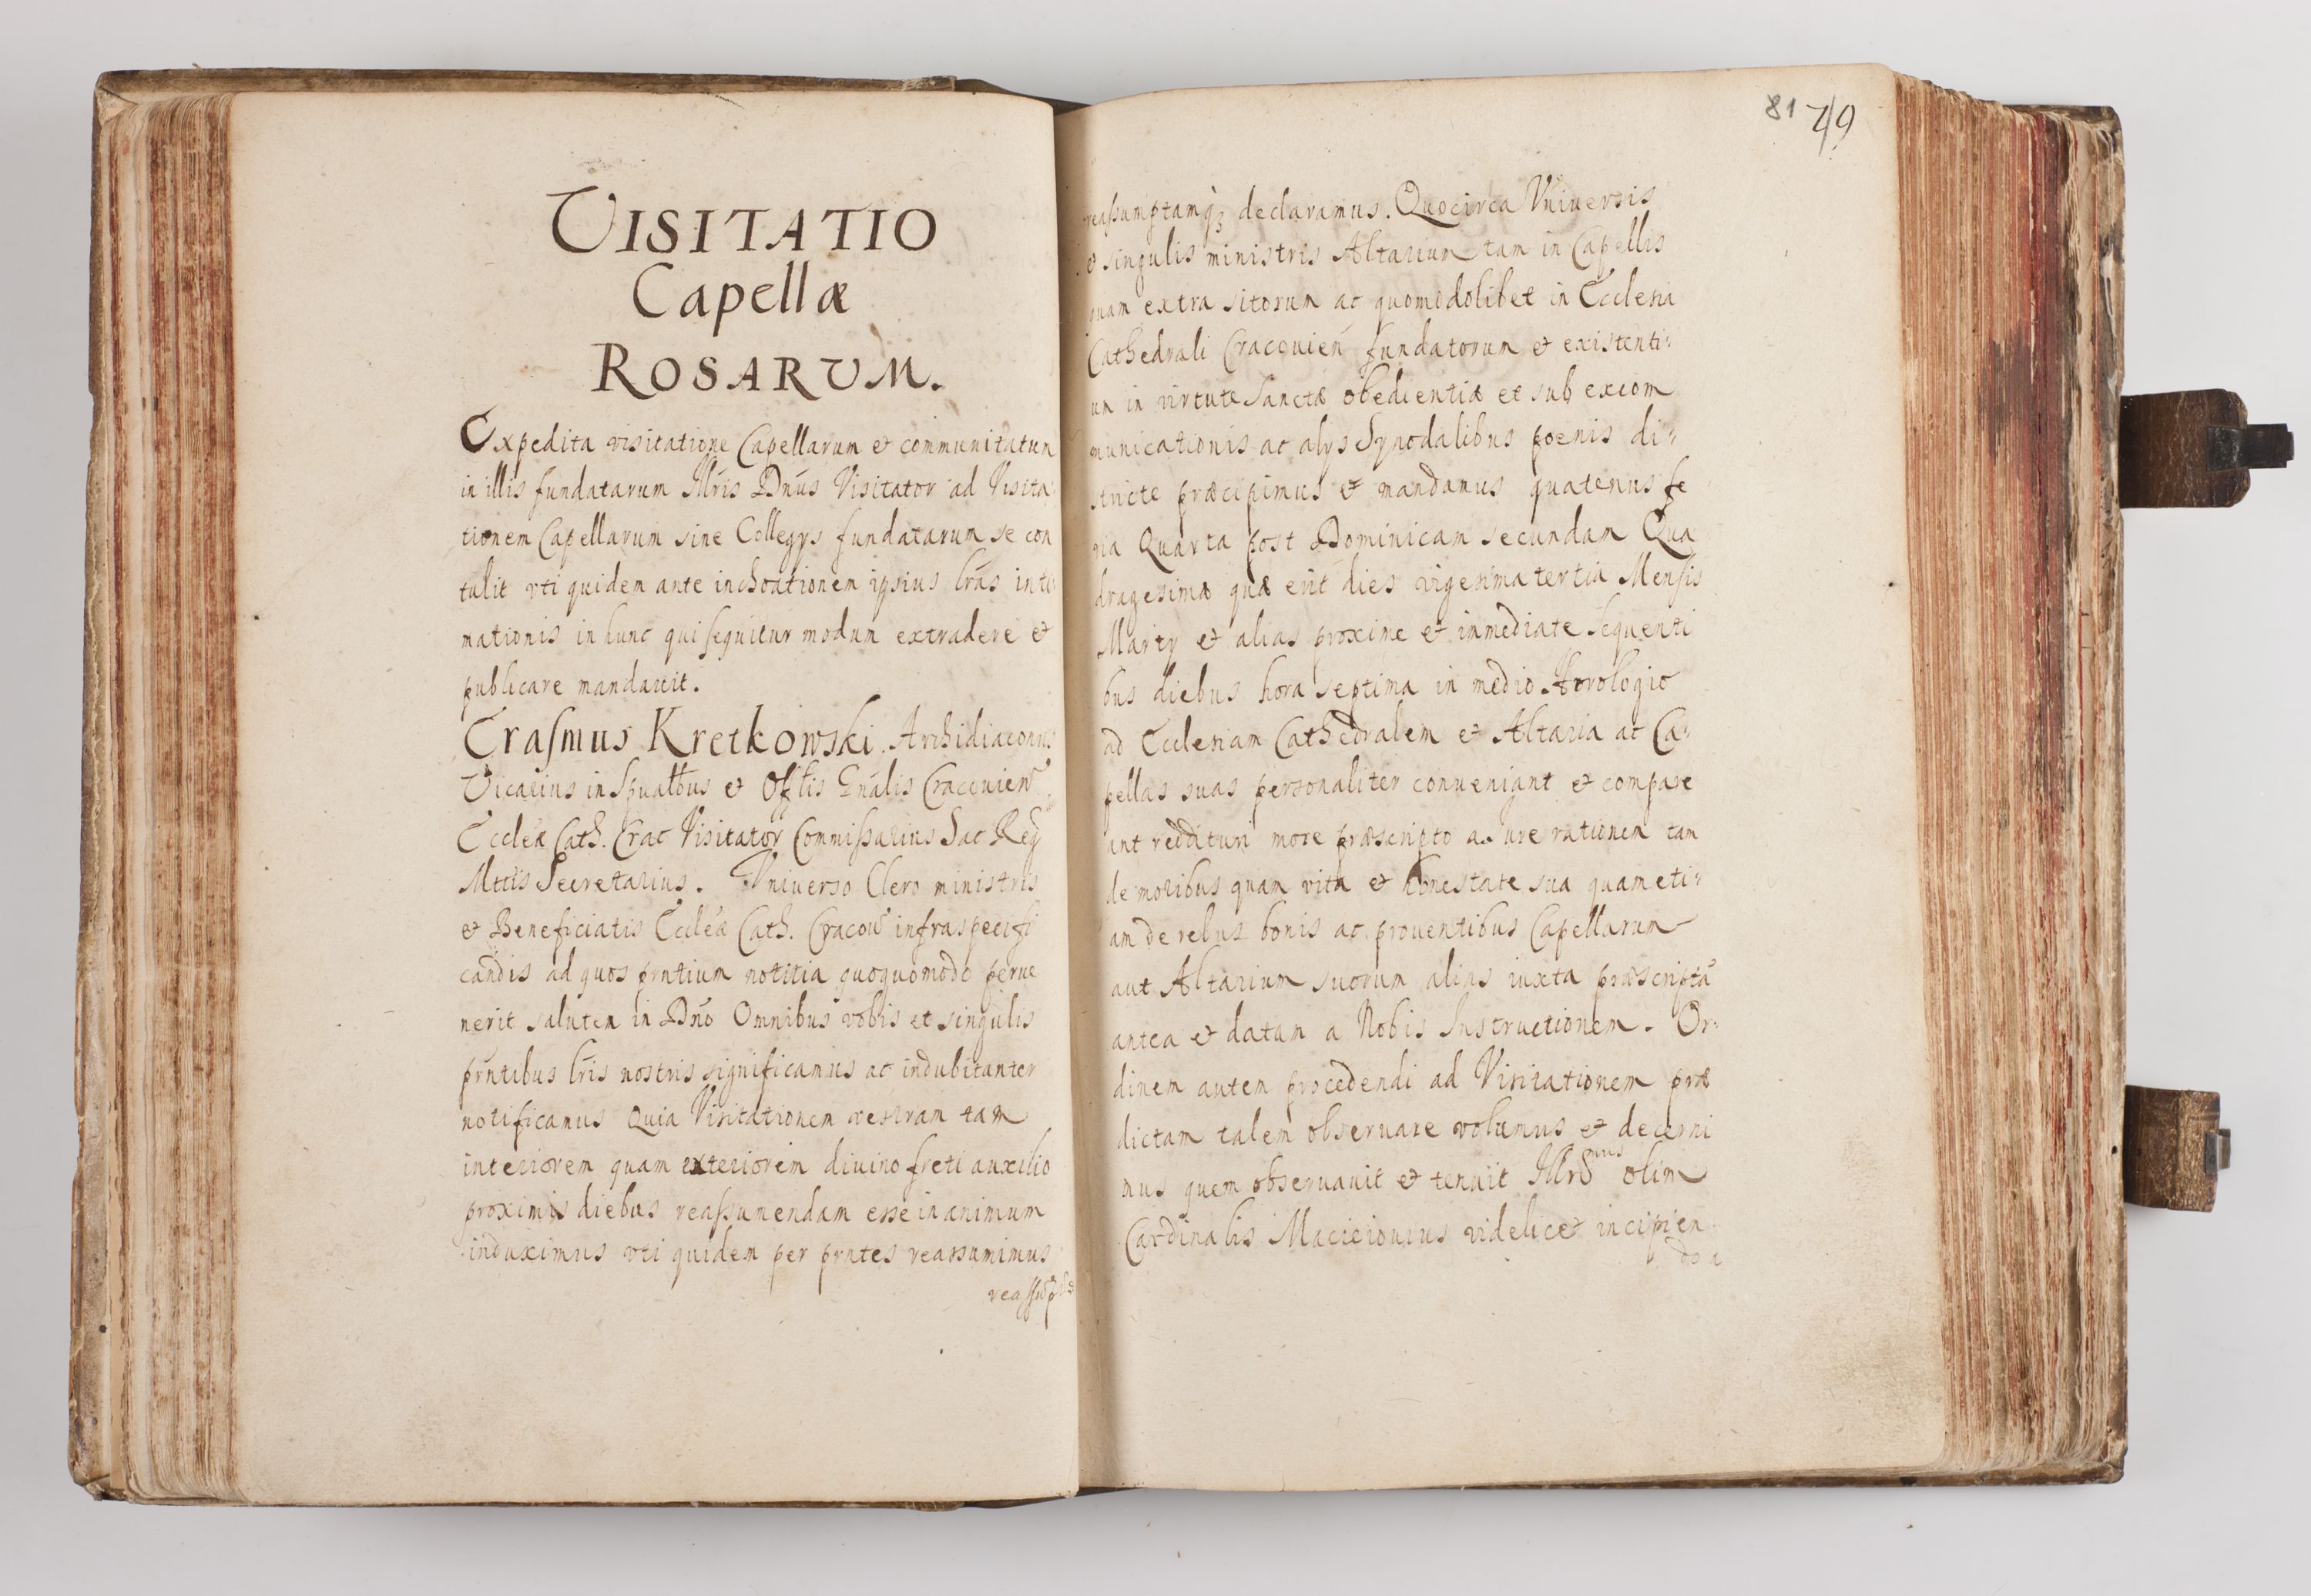 VISITATIO
Capellæ
ROSARUM.
Expedita visitatione Capellarum et communitatum
in illis fundatarum Illr̃is Dñus Visitator ad Visita
tionem Capellarum sine Collegijs fundatarum se con
tulit vti quidem ante inchoationem ipsius lr̃as inti
mationis in hunc qui sequitur modum extradere et
publicare mandauit.
Erasmus Kretkowski. Archidiaconus
Vicarius in Spualibus et Offlis Gñalis Cracouien̄
Eccleæ Cath. Crac Visitator Commissarius Sac Reg
Mttis Secretarius. Vniuerso Clero ministris
et Beneficiatis Eccleæ Cath. Cracou̅ infraspecifi
candis ad quos prntium notitia quoquomodo perue
nerit salutem in Dño Omnibus vobis et singulis
prñtibus lr̃is nostris significamus ac indubitanter
notificamus Quia Visitationem vestram tam
interiorem quam exteriorem diuino freti auxilio
proximis diebus reassumendam esse in animum
induximus vti quidem per prntes reassumimus
81 79
reassumptamq́ꝫ declaramus. Quocirca Vniuersis
et singulis ministris Altarium tam in Capellis
quam extra sitorum ac quomodolibet in Ecclesia
Cathedrali Cracouien̄ fundatorum et existenti-
um in virtute sanctæ obedientiæ et sub excom
municationis ac alijs Synodalibus poenis di-
stricte præcipimus et mandamus quatenus fe
ria Quarta post Dominicam secundam Qua
dragesimæ quæ erit dies vigesima tertia Mensis
Martij et alias proxime et immediate sequenti
bus diebus hora septima in medio Horologio
ad Ecclesiam Cathedralem et Altaria ac Ca-
pellas suas personaliter conueniant et compare
ant reddituri more præscripto ac iure rationem tam
de moribus quam vita et honestate sua quam eti-
am de rebus bonis ac prouentibus Capellarum
aut Altarium suorum alias iuxta præscriptã
antea et datam a Nobis Instructionem. Or-
dinem autem procedendi ad Visitationem præ
dictam talem obseruare volumus et decerni
mus quem obseruauit et tenuit Illrd̄mus olim
Cardinalis Macieiouius videlicet incipien
do a